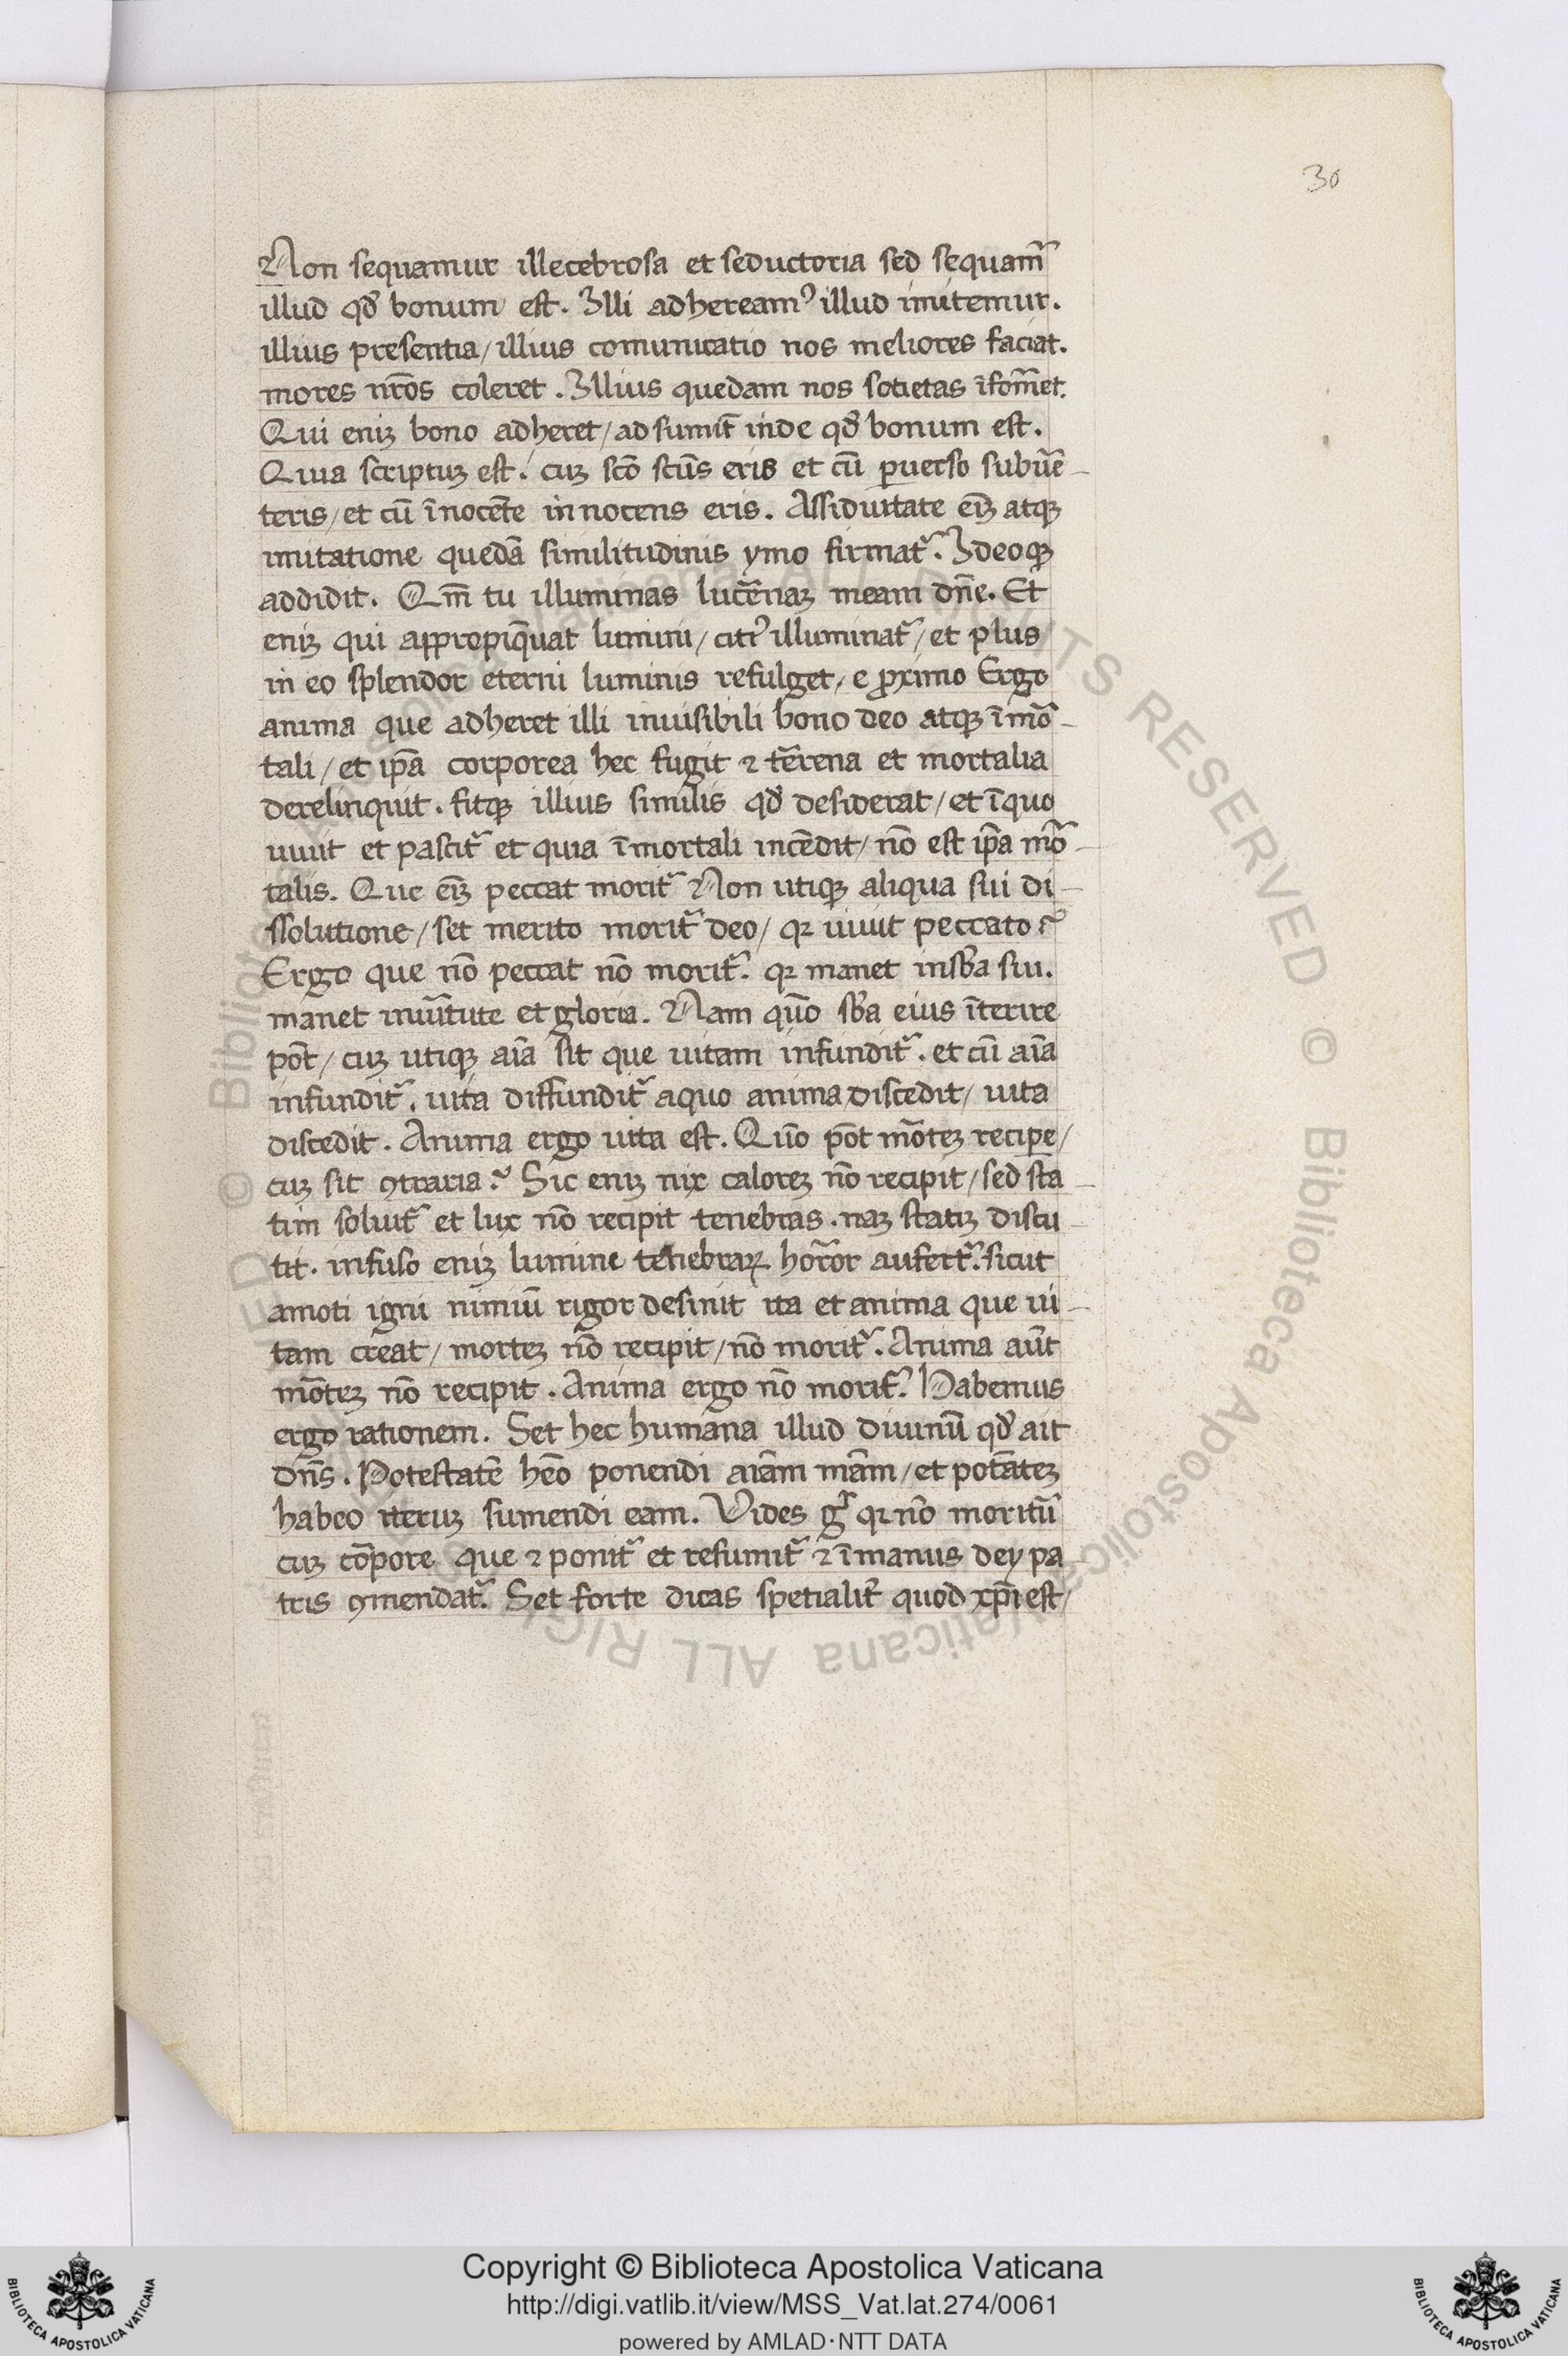 30
Non sequamur illecebrosa et seductoria sed sequam̃
illud qđ bonum est. Illi adheream⁹ illud imitemur.
illius presentia / illius comunicatio nos meliores faciat.
mores nr̃os coleret. Illius quedam nos sotietas ĩfom̃et.
Qui eniʒ bono adheret / ad sumit̃ inde qđ bonum est.
Quia scriptuʒ est. cuʒ scõ scũs eris et cũ ꝑuerso subũe-
teris / et cũ ĩnocẽte innocens eris. Assiduitate eĩʒ atqʒ
imitatione quedã similitudinis ymo firmat̃. Ideoqʒ
addidit. Qm̃ tu illuminas lucẽnaʒ meam dñe. Et
eniʒ qui appropiq̃uat lumini / citi⁹ illuminat̃ / et plus
in eo splendor eterni luminis refulget / e ꝓximo Ergo
anima que adheret illi inuisibili bono deo atqʒ ĩmõ-
tali / et ip̃a corporea hec fugit ⁊ tẽrena et mortalia
derelinquit. fitqʒ illius similis qđ desiderat / et ĩquo
uiuit et pascit̃ et quia ĩmortali incẽdit / nõ est ip̃a mõ-
talis. Que eĩʒ peccat morit̃ Non utiqʒ aliqua sui di-
ssolutione / set merito morit̃ deo / qꝛ uiuit peccato
Ergo que nõ peccat nõ morit̃. qꝛ manet insb̃a sui.
manet inuĩtute et gloria. Nam quõ sb̃a eius ĩterire
põt / cuʒ utiqʒ aĩa sit que uitam infundit̃. et cũ aĩa
infundit̃. uita diffundit̃ aquo anima discedit / uita
discedit. Anima ergo uita est. Quõ põt mõteʒ reciꝑe /
cuʒ sit ꝯtraria? Sic eniʒ nix caloreʒ nõ recipit / sed sta-
tim soluit̃ et lux nõ recipit tenebras. naʒ statiʒ discu-
tit. infuso eniʒ lumine tenebraꝝ hor̃or aufert̃. sicut
amoti igni nimiũ rigor desinit ita et anima que ui-
tam creat / morteʒ nõ recipit / nõ morit̃. Anima aũt
mõteʒ nõ recipit. Anima ergo nõ morit̃. Habemus
ergo rationem. Set hec humana illud diuinũ qđ ait
dñs. Potestatẽ hẽo ponendi aĩam mẽam / et potãteʒ
habeo iteruʒ sumendi eam. Vides gͥ qꝛ nõ moritũ
cuʒ cõpore que ⁊ ponit̃ et resumit̃ ⁊ ĩmanus dey pa-
tris ꝯmendat̃. Set forte dicas spetialit̃ quod xp̃i est /
Copyright © Biblioteca Apostolica Vaticana
http://digi.vatlib.it/view/MSS_Vat.lat.274/0061
powered by AMLAD·NTT DATA